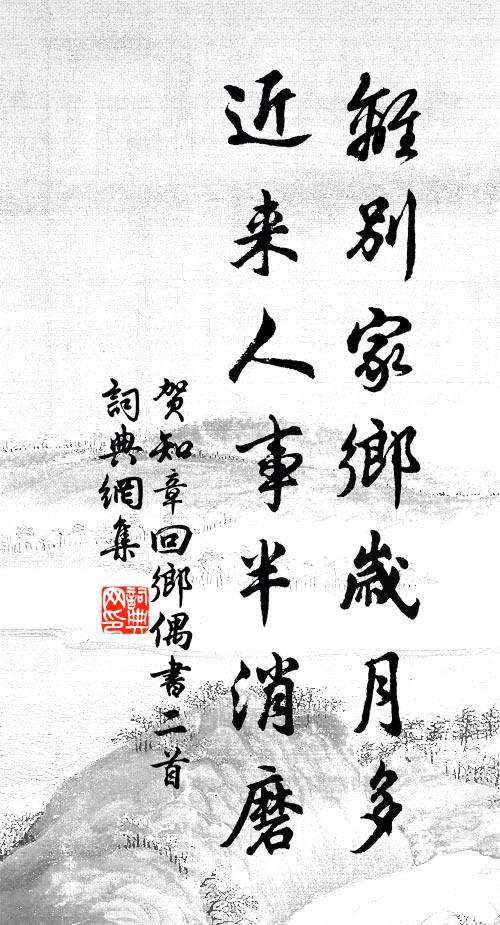 離別家鄉歲月多
近来人事半消磨
賀知章回鄉偶書二首
詞典網集
詞典网印